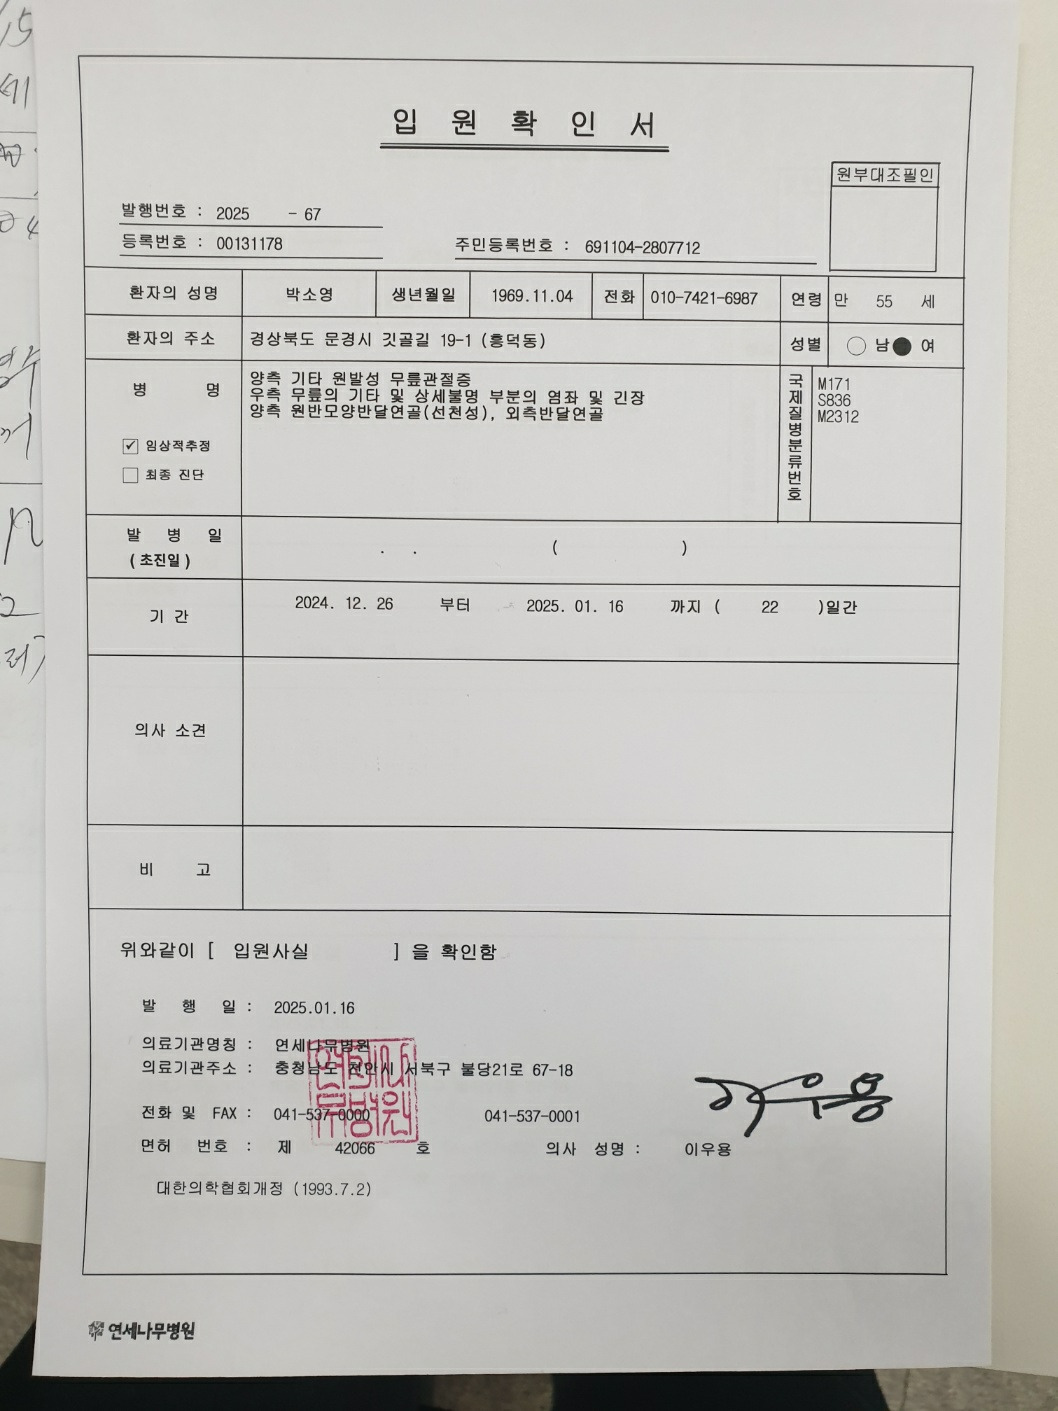 입 원 확 인 서
원부대조필인
발행번호 : 2025 - 67
등록번호 : 00131178 주민등록번호 : 691104-2807712
환자의 성명 박소영 생년월일 1969.11.04 전화 010-7421-6987 연령 만 55 세
환자의 주소 경상북도 문경시 깃골길 19-1 (흥덕동) 성별 남 여
병 명
양측 기타 원발성 무릎관절증
우측 무릎의 기타 및 상세불명 부분의 염좌 및 긴장
양측 원반모양반달연골(선천성), 외측반달연골
임상적추정
최종 진단
국제질병분류번호
M171
S836
M2312
발 병 일
(초진일)
. . ( )
기 간 2024. 12. 26 부터 2025. 01. 16 까지 ( 22 )일간
의사 소견
비 고
위와같이 [ 입원사실 ] 을 확인함
발 행 일 : 2025.01.16
의료기관명칭 : 연세나무병원
의료기관주소 : 충청남도 천안시 서북구 불당21로 67-18
전화 및 FAX : 041-537-0000 041-537-0001
면허 번호 : 제 42066 호 의사 성명 : 이우용
대한의학협회개정 (1993.7.2)
연세나무병원